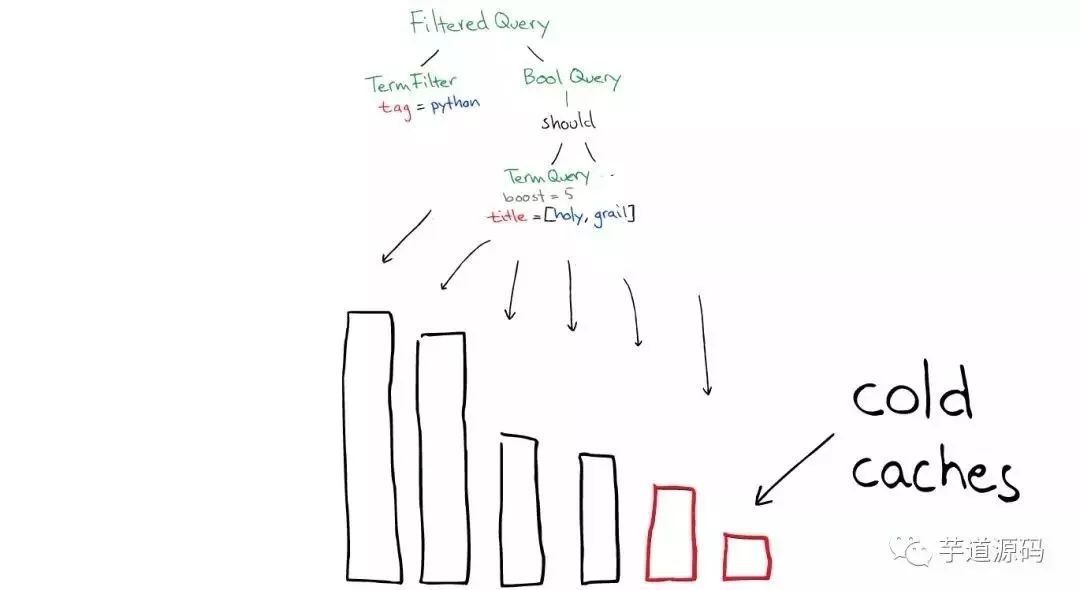 Filtered Query
TermFilter
tag = python
Bool Query
should
TermQuery ...
boost = 5
title = [holy, grail]
cold
caches
芋道源码